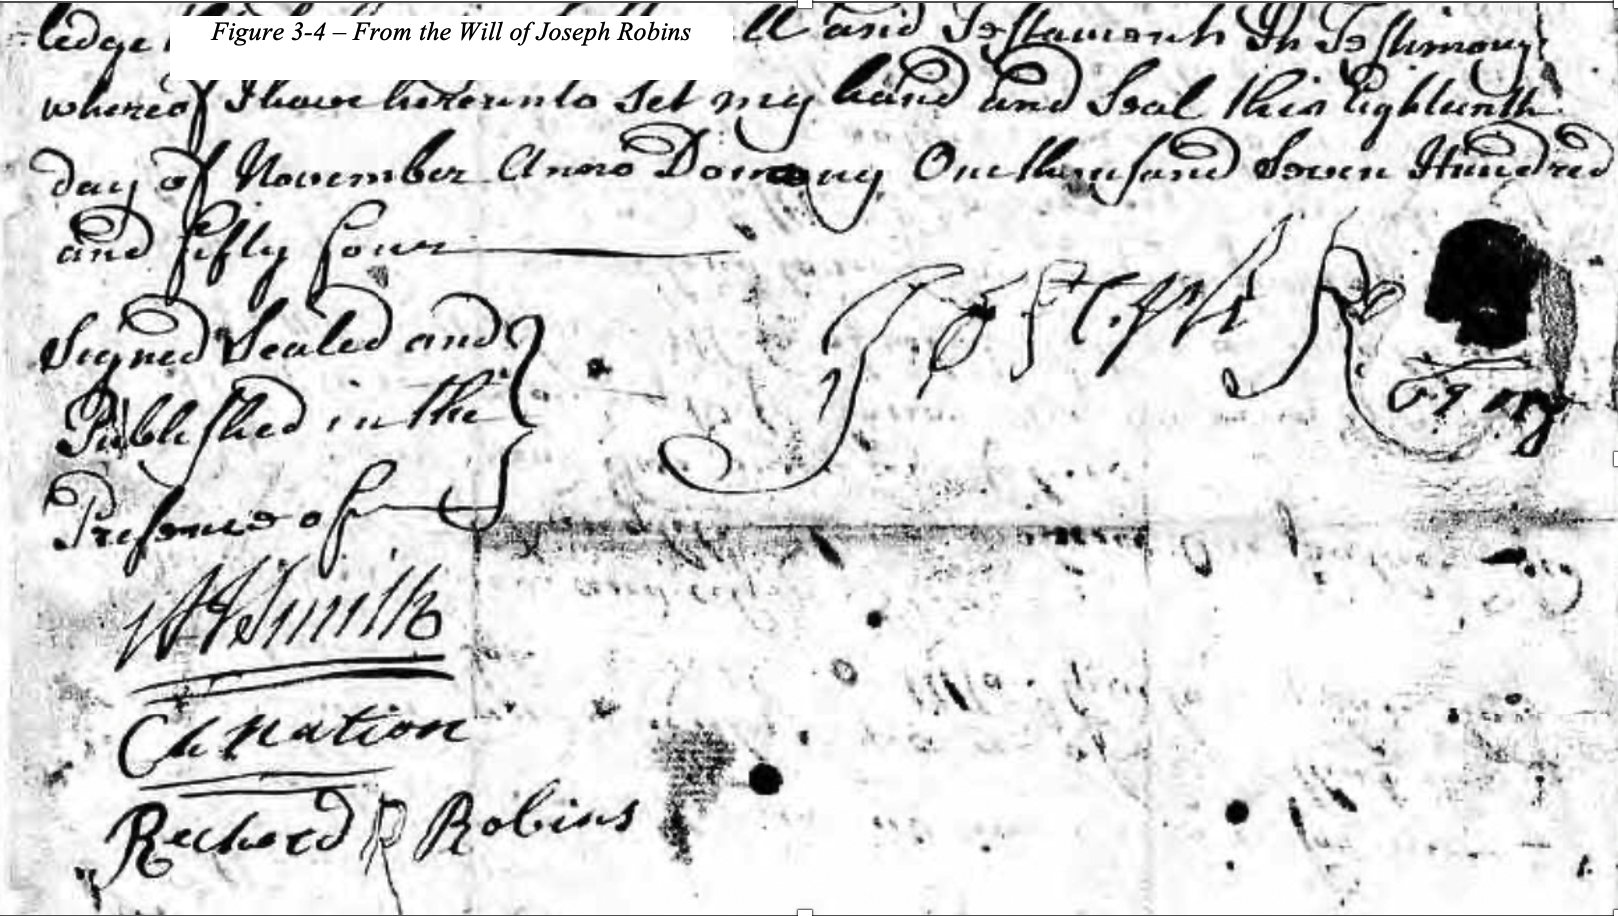 Figure 3-4 – From the Will of Joseph Robins
ledge and Testament In Testimony
whereof I have hereunto Set my hand and Seal this Eighteenth
day of November Anno Domony One thousand Seven Hundred
and fifty four
Signed Sealed and
Published in the
Presence of
Joseph R
Smith
Ch Nation
Richard R Robins